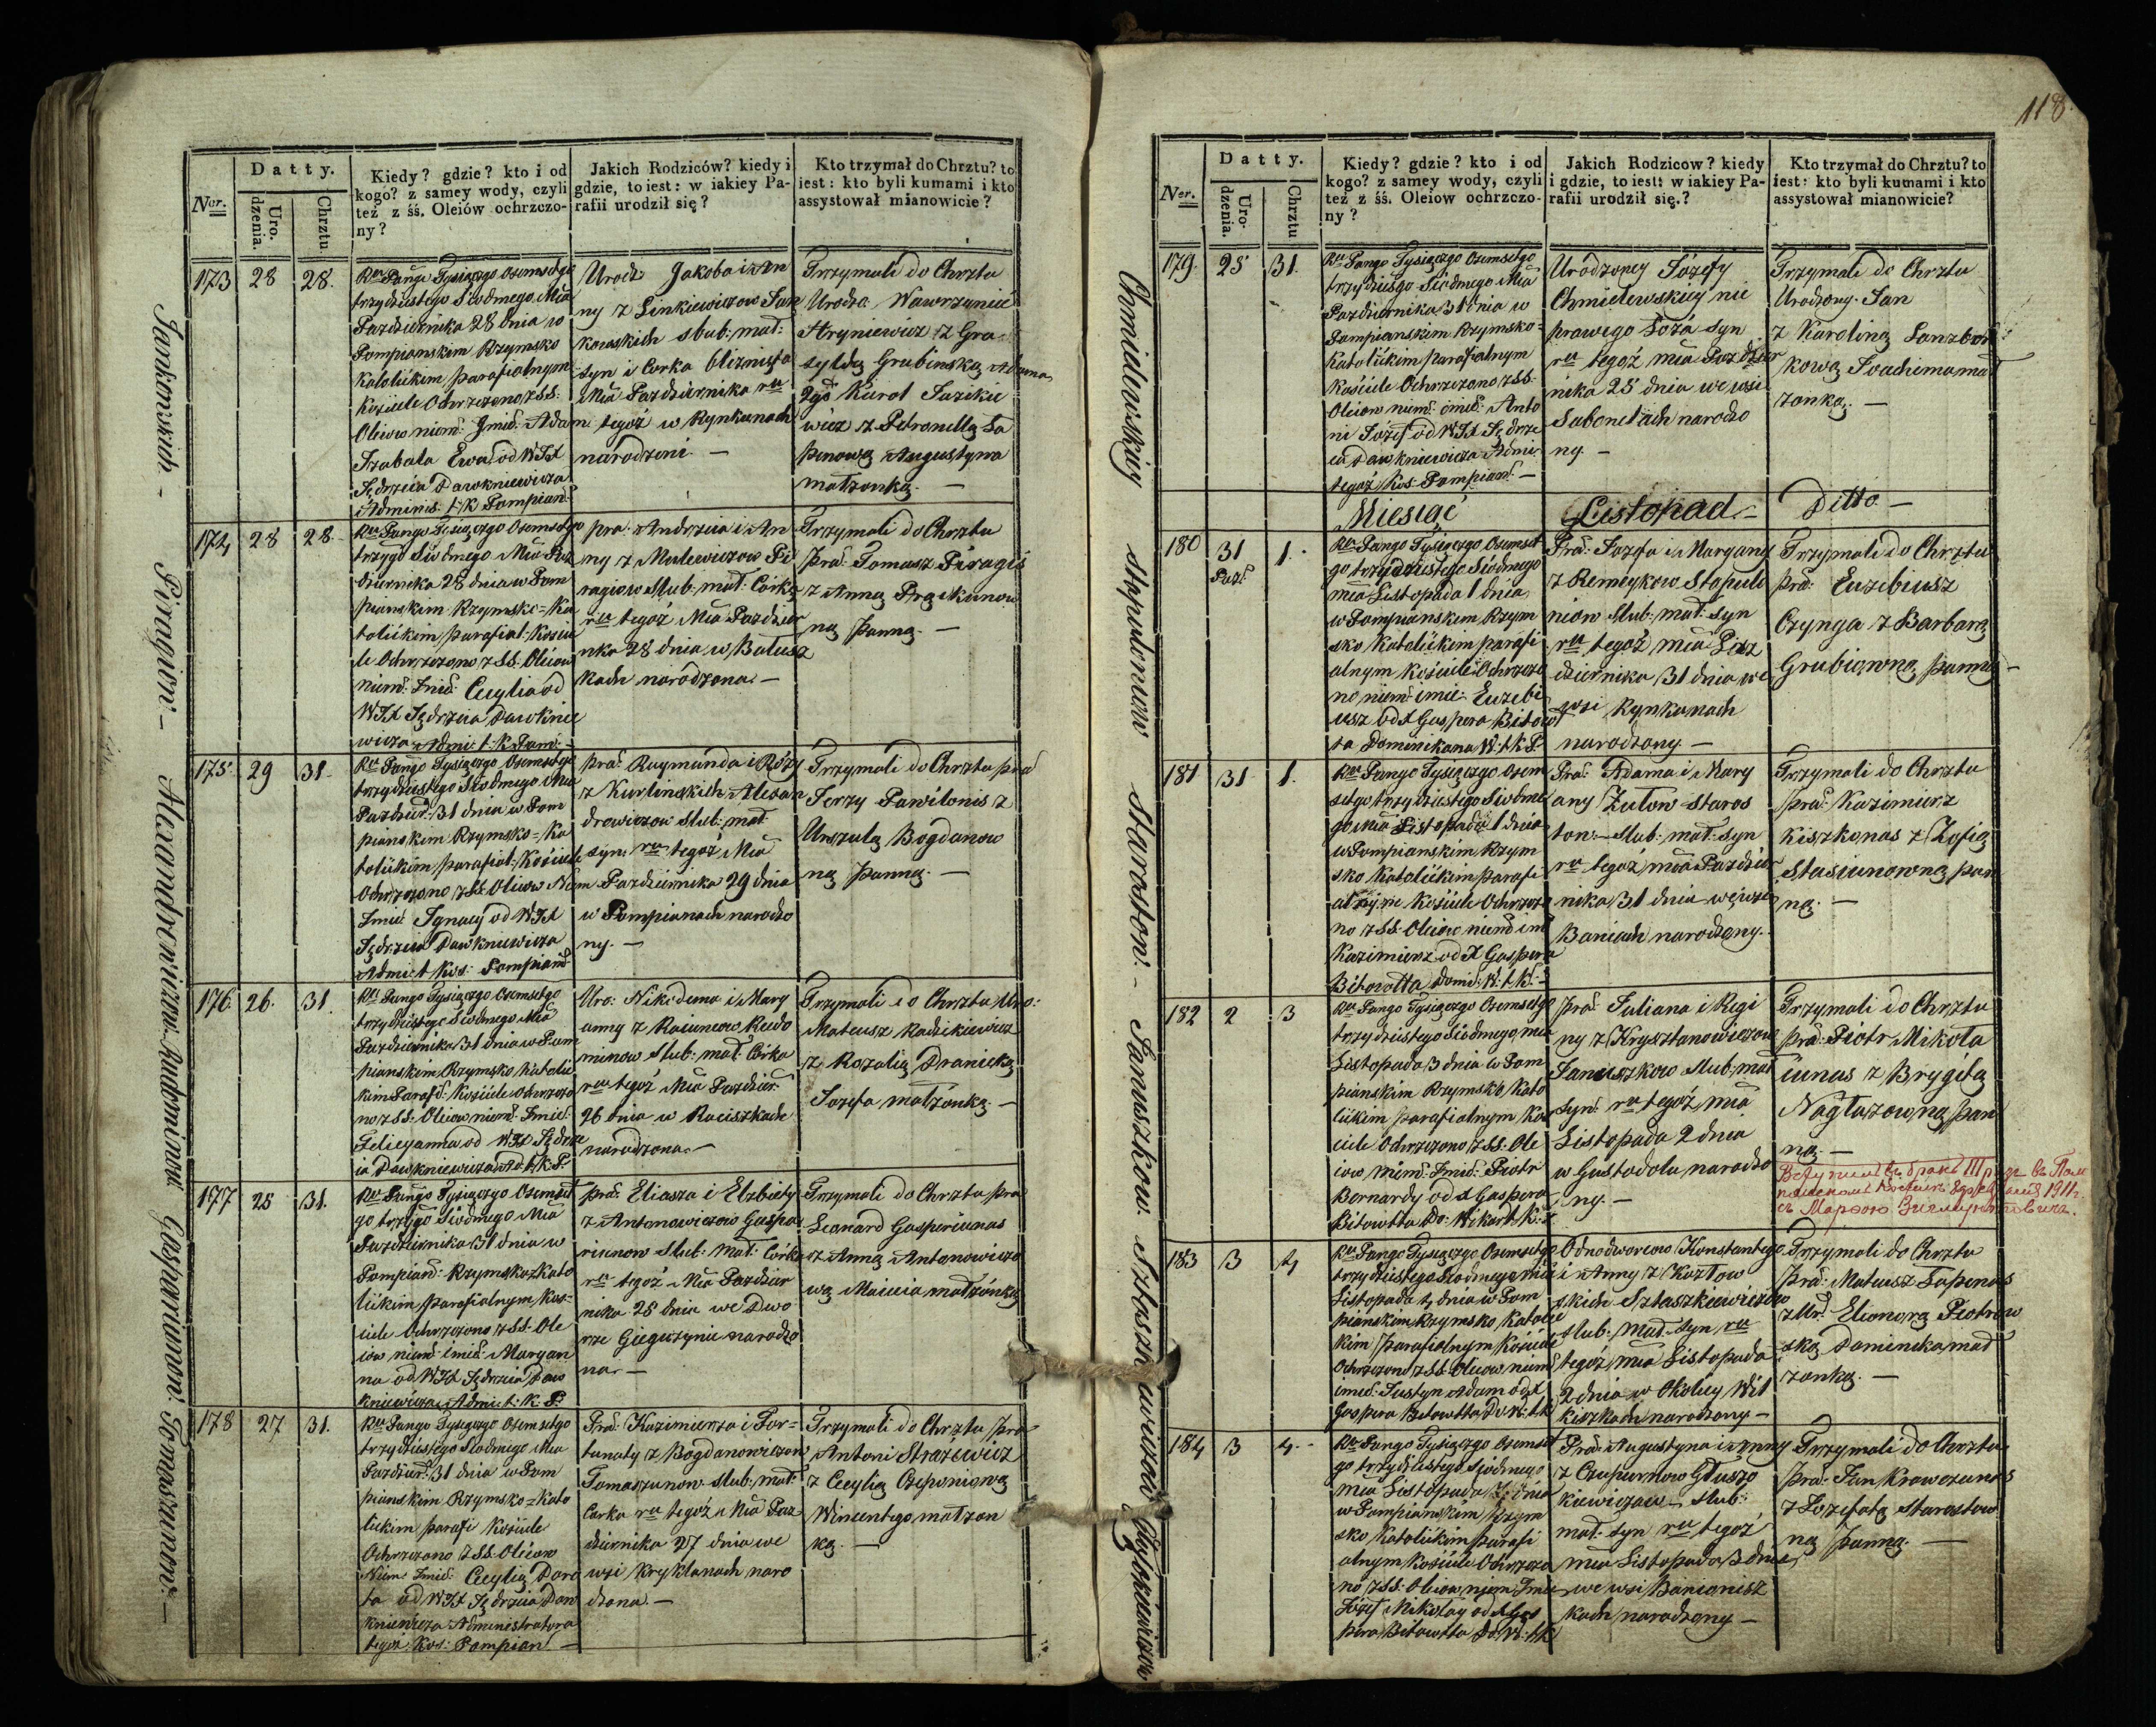 118
Datty.
Ner.
Uro-
dzenia.
Chrztu
Kiedy? gdzie? kto i od
kogo? z samey wody, czyli
też z śś. Oleiów ochrzczo-
ny?
Jakich Rodziców? kiedy i
gdzie, to iest: w iakiey Pa-
rafii urodził się?
Kto trzymał do Chrztu? to
iest: kto byli kumami i kto
assystował mianowicie?
173 28 28.
Ru Pango Tysiączgo Osemsetgo
trzydziestego Siodmego Mca
Pazdziernika 28 dnia w
Pompianskim Rzymsko
Katolickim parafialnym
Kościele Ochrzczono z SS:
Oleiow niem: Jmie: Adam
Izabala Ewa od WJX
Jędrzeia Dawkniewicza
Adminis. t. K Pompian
Urodz: Jakoba i An
ny z Linkiewiczow Jan
kowskich slub: mał:
syn i Corka bliznięta
Mca Pazdziernika ru
tegoż w Rynkunach
narodzeni. —
Trzymali do Chrztu
Urodz. Wawrzyniec
Hryniewicz z Gra
syldą Grabinską Adama
2gō Karol Jazikie
wicz z Petronellą Ła
penową Augustyna
małżonką. —
174 28 28
Ru Pango Tysiączgo Osemsetgo
trzygo Siodmego Mca Paz
dziernika 28 dnia w Pom
pianskim Rzymsko=Ka
tolickim parafial: Koscie
le Ochrzczono z SS: Oleiow
niem: Jmie: Cecylia od
WJX Jędrzeia Dawknie
wicza Admi: t: K Pam: —
pra: Andrzeia i An
ny z Mulewiczow Pi
ragiow slub: mał: Corka
ru tegoż Mca Pazdzier
nka 28 dnia w Batusz
kach narodzona. —
Trzymali do Chrztu
pra: Tomasz Piragis
z Anną Prajkunow
ną panną. —
175 29 31
Ru Pango Tysiączgo Osemsetgo
trzydziestego Siodmego Mca
Pazdzier: 31 dnia w Pom
pianskim Rzymsko=Ka
tolickim parafial: Kościele
Ochrzczono z SS Oliow Niem
Jmie: Ignacy od WJX
Jędrzeia Dawkniewicza
Admi: t Kos: Pompian
pra: Raymunda i Rózy
z Kurlinskich Alexan
drowiczow slub: mał:
syn ru tegoż Mca
Pazdziernika 29 dnia
w Pompianach narodzo
ny. —
Trzymali do Chrztu pra
Jerzy Pawilonis z
Urszulą Bogdanow
ną panną. —
176 26. 31
Ru Pango Tysiączgo Osemsetgo
trzydziestego Siodmego Mca
Pazdziernika 31 dnia w Pom
pianskim Rzymsko Katolic
kim Parafi: Kościele Ochrzczo
no z SS: Oleiow niem: Jmie:
Felicyanna od WJX Jędrze
ia Dawkniewicza Ad: t: K: P:
Uro: Nikodema i Mary
anny z Raiunow Rudo
minow slub: mał: Córka
ru tegoż Mca Pazdzier:
26 dnia w Raciszkach
narodzona. —
Trzymali do Chrztu Uro:
Mateusz Radzikiewicz
z Rozalią Dranicką
Jozefa małżonką. —
177 25 31.
Ru Pango Tysiączgo Osemset
go trzygo Siodmego Mca
Pazdziernika 31 dnia w
Pompian: Rzymsko=Kato
lickim parafialnym Koś=
ciele Ochrzczono z SS: Ole
iow niem imie: Maryan
na od WJX Jędrzeia Daw
kniewicza Admi: t: K: P.
pra: Eliasza i Elzbiety
z Antonowiczow Gaspa
riunow slub: mał: Córka
ru tegoż Mca Pazdzier
nika 25 dnia we Dwo
rze Gieguzynie narodzo
na. —
Trzymali do Chrztu pra
Leonard Gasperiunas
z Anną Antonowiczo
wą Macieia małżonką
178 27 31.
Ru Pango Tysiączgo Osemsetgo
trzydziestego Siodmego Mca
Pazdzier: 31 dnia w Pom
pianskim Rzymsko=Kato
lickim parafi Kościele
Ochrzczono z SS: Oleiow
Niem: Jmie: Cecylia Doro
ta od WJX Jędrzeia Daw
kniewicza Administratora
tegoż Kos: Pompian —
Pra: Kazimierza i For=
tunaty z Bogdanowiczow
Tomaszunow slub: mał:
Corka ru tegoż Mca Paz
dziernika 27 dnia we
wsi Kryklanach naro
dzona. —
Trzymali do Chrztu pra
Antoni Strazewicz
z Cecylią Czeponiową
Wincentego małżon
ką. —
Jankowskich — Piragiow — Alexandrowiczow. Rudominow Gaspariunow: Tomaszunow: —
Datty.
Ner.
Uro-
dzenia.
Chrztu
Kiedy? gdzie? kto i od
kogo? z samey wody, czyli
też z śś. Oleiow ochrzczo-
ny?
Jakich Rodzicow? kiedy
i gdzie, to iest: w iakiey Pa-
rafii urodził się?
Kto trzymał do Chrztu? to
iest: kto byli kumami i kto
assystował mianowicie?
179. 25 31.
Ru Pango Tysiączgo Osemsetgo
trzydzisgo Siódmego Mca
Pazdziernika 31 dnia w
Pompianskim Rzymsko=
Katolickim parafialnym
Kościele Ochrzczono z SS.
Oleiow niem: imie: Anto
ni Jozef od WJX Jędrze
ia Dawkniewicza Admi:
tegoż Kos: Pompian: —
Urodzoney Józefy
Chmielewskiey nie
prawego Łoża syn
ru tegoż mca Pazdzier
nika 25 dnia we wsi
Sabonelach narodzo
ny. —
Trzymali do Chrztu
Urodzony Jan
z Karoliną
kową Joachima mał
żonką. —
Miesiąc Listopad — Ditto. —
180 31 1.
Pazd:
Ru Pango Tysiączgo Osemset
go trzydziestego Siodmego
mca Listopada 1 dnia
w Pompianskim Rzym
sko Katolickim parafi
alnym kościele Ochrzczo
no niem: imie: Euzebi
usz od X Gaspera Bitow
ta Dominikana W: t K P
Pra: Jozefa i Maryany
z Remeykow Stapulo
niow slub: mał: syn
ru tegoż mca Paz
dziernika 31 dnia we
wsi Rynkunach
narodzony. —
Trzymali do Chrztu
pra: Euzebiusz
Czynga z Barbarą
Grubiąwną panną —
181 31 1.
Ru Pango Tysiączgo Osem
setgo trzydziestego Siodme
go Mca Listopada 1 dnia
w Pompianskim Rzym
sko Katolickim parafi
alnym kościele Ochrzczo
no z SS. Oleiow niem imi
Kazimierz od X Gaspera
Bitowtta Domi: W: t K: —
Pra: Adama i Mary
any Zutow Staros
ton: — slub: mał: syn
ru tegoż mca Pazdzier
nika 31 dnia we wsi
Baniach narodzony.
Trzymali do Chrztu
pra: Kazimierz
Kiszkonas z Zofią
Stasiunowną pan
ną. —
182 2 3
Ru Pango Tysiączgo Osemsetgo
trzydziestego Siodmego mca
Listopada 3 dnia w Pom
pianskim Rzymsko Kato
lickim parafialnym Koś
ciele Ochrzczono z SS. Ole
iow niem: Jmie: Piotr
Bernardy od X Gaspera
Bitowtta Do: Wikar: t. K:
pra: Juliana i Regi
ny z Krysztanowiczow
Januszkow slub: mał
syn ru tegoż mca
Listopada 2 dnia
w Gustodolu narodzo
ny. —
Trzymali do Chrztu
pra: Piotr Mikoła
iunas z Brygitą
Nagłazowną pan
ną. —
183 3 4
Ru Pango Tysiączgo Osemsetgo
trzydziestego Siodmego mca
Listopada 4 dnia w Pom
pianskim Rzymsko Katolic
kim parafialnym Kościele
Ochrzczono z SS. Oleiow niem:
imie: Justyn Adam od X
Gaspera Bitowtta Do W: t K
Odnodworcow Konstantego
i Anny z Kozłow
skich Sztaszkiewiczow
slub: mał: syn ru
tegoż mca Listopada
2 dnia w Okolicy Wil
kiszkach narodzony —
Trzymali do Chrztu
pra: Mateusz Łapenas
z Ur: Elionorą Piotrow
ską Dominika mał
żonką. —
184 3 4.
Ru Pango Tysiączgo Osemset
go trzydziestego Siodmego
mca Listopada 4 dnia
w Pompianskim Rzym
sko Katolickim parafi
alnym kościele Ochrzczo
no z SS: Oleiow niem Jmie
Józef Mikołay od X Gas
pera Bitowtta Do W: t K
Pra: Augustyna i Anny
z Czepurnow Głuszo
kiewiczow slub:
mał: syn ru tegoż
mca Listopada 3 dnia
we wsi Banionisz
kach narodzony —
Trzymali do Chrztu
pra: Jan Krawczunas
z Jozefatą Starostow
ną panną. —
Chmielewskiey Stapuloniow Staroston: — Januszkow